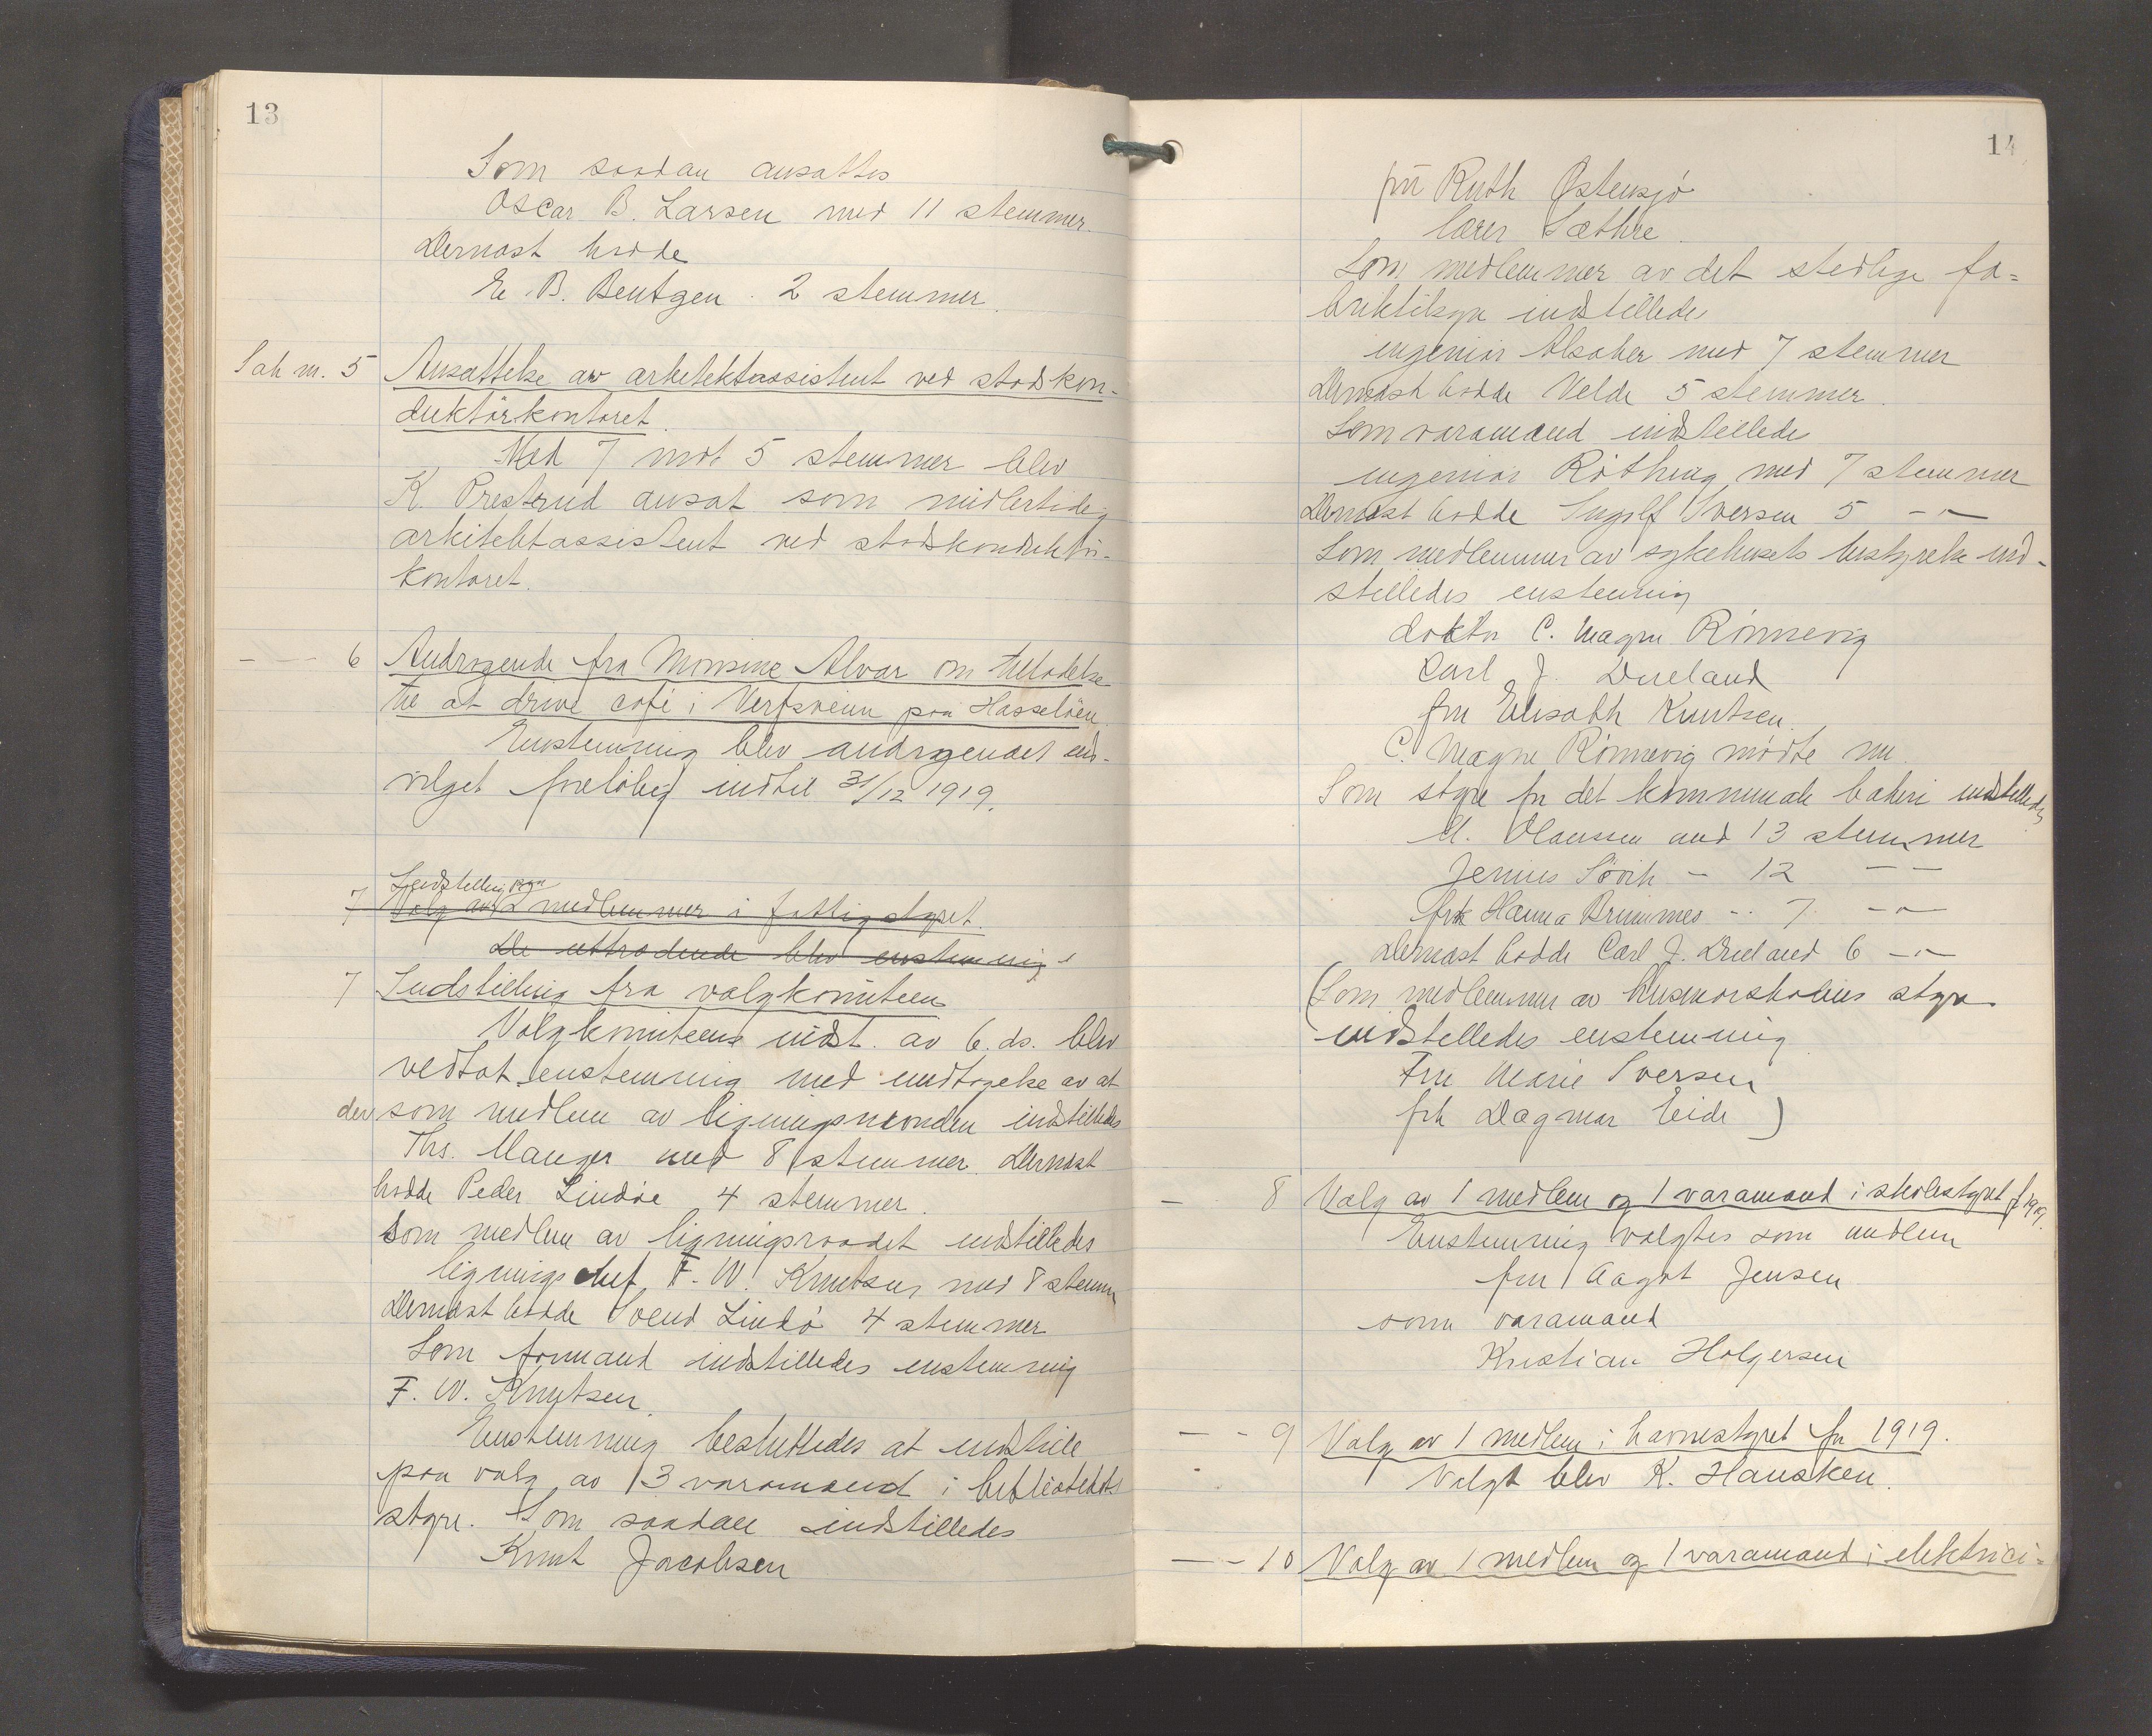 13
Som saadan ansattes
Oscar B. Larsen med 11 stemmer.
Dernæst hadde
E. B. Bentzen. 2 stemmer.
Sak nr. 5 Ansættelse av arkitektassistent ved stadskon-
duktörkontoret.
Med 7 mot 5 stemmer blev
K. Prestrud ansat som midlertidig
arkitektassistent ved stadskonduktör-
kontoret.
- — 6 Andragende fra Monsine Alvær om tilladelse
til at drive café i Verftsveien paa Hasselöen.
Enstemmig blev andragendet ind-
vilget foreløbig indtil 31/12 1919.
Indstilling paa
7 Valg av 2 medlemmer i fattigstyret.
De uttrædende blev enstemmig
7 Indstilling fra valgkomiteen
Valgkomiteens indst. av 6. ds. blev
vedtat enstemmig med undtagelse av at
der som medlem av ligningsnevnden indstilledes
Ths. Manger med 8 stemmer. Dernæst
hadde Peder Lindöe 4 stemmer.
Som medlem av ligningsraadet indstilledes
ligningschef F. W. Knutsen med 8 stemm
Dernæst hadde Svend Lindö 4 stemmer
Som formand indstilledes enstemmig
F. W. Knutsen.
Enstemmig besluttedes at indstille
paa valg av 3 varamænd i bibliotekets
styre. Som saadan indstilledes
Knut Jacobsen
14
fru Ruth Østensjö
lærer Sæthre.
Som medlemmer av det stedlige fa=
briktilsyn indstilledes
ingeniör Alsaker med 7 stemmer
Dernæst hadde Velde 5 stemmer.
Som varamand indstilledes
ingeniör Röthing med 7 stemmer
Dernæst hadde Ingolf Iversen 5 -"-
Som medlemmer av sykehusets bestyrelse ind-
stilledes enstemmig
doktor C. Magne Rönnevig
Carl J. Dueland
fru Elisabth Knutsen.
C. Magne Rönnevig mödte nu.
Som styre for det kommunale bakeri indstilledes
M. Olaussen med 13 stemmer
Jenius Sövik - 12 - -
frk Hanna Brummes -.. 7. -"-
Dernæst hadde Carl J. Dueland 6 -"-
(Som medlemmer av husmorskolens styre
indstilledes enstemmig
Fru Marie Iversen
frk Dagmar Eide )
— 8 Valg av 1 medlem og 1 varamand i skolestyret f 1919.
Enstemmig valgtes som medlem
fru Aagot Jensen
som varamand
Kristian Holgersen
— - 9 Valg av 1 medlem i havnestyret for 1919.
Valgt blev K. Hausken.
— - 10 Valg av 1 medlem og 1 varamand i elektrici=